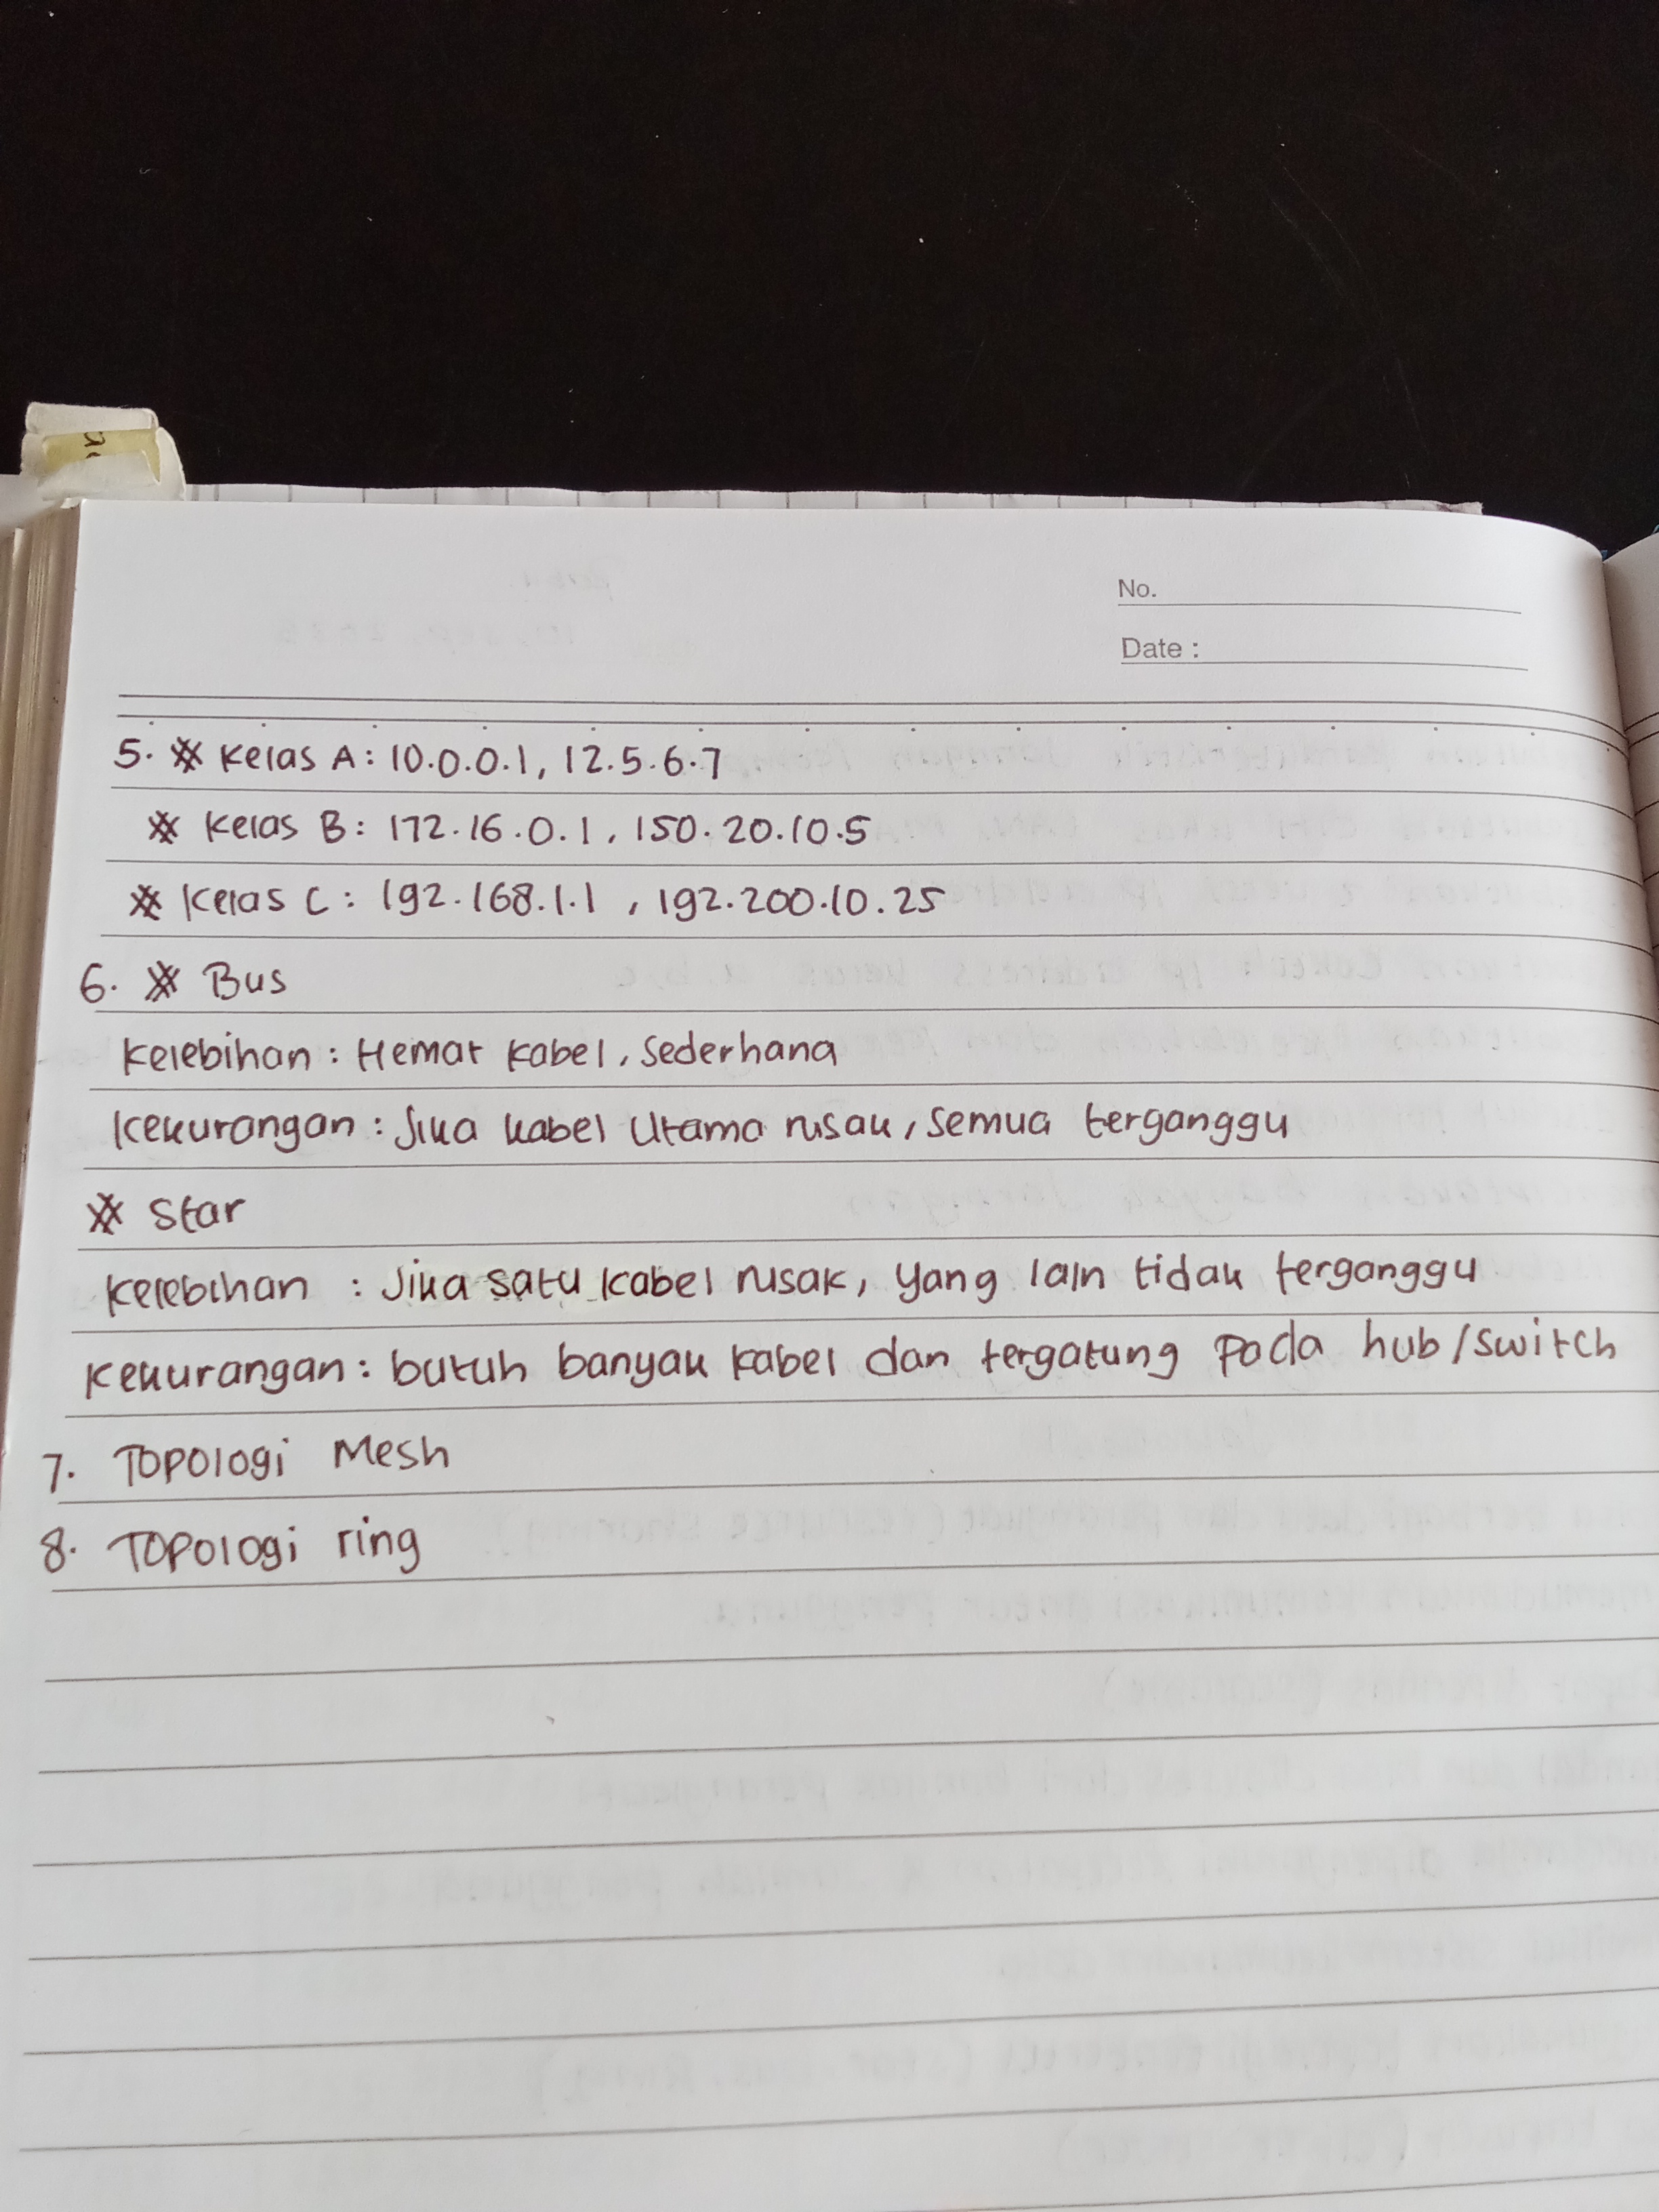 No.
Date :
5. * Kelas A : 10.0.0.1, 12.5.6.7
* Kelas B : 172.16.0.1, 150.20.10.5
* Kelas C : 192.168.1.1, 192.200.10.25
6. * Bus
Kelebihan : Hemat kabel, Sederhana
Kekurangan : Jika kabel Utama rusak, Semua terganggu
* Star
Kelebihan : Jika satu kabel rusak, yang lain tidak terganggu
Kekurangan : butuh banyak kabel dan tergatung pada hub/switch
7. Topologi Mesh
8. Topologi ring